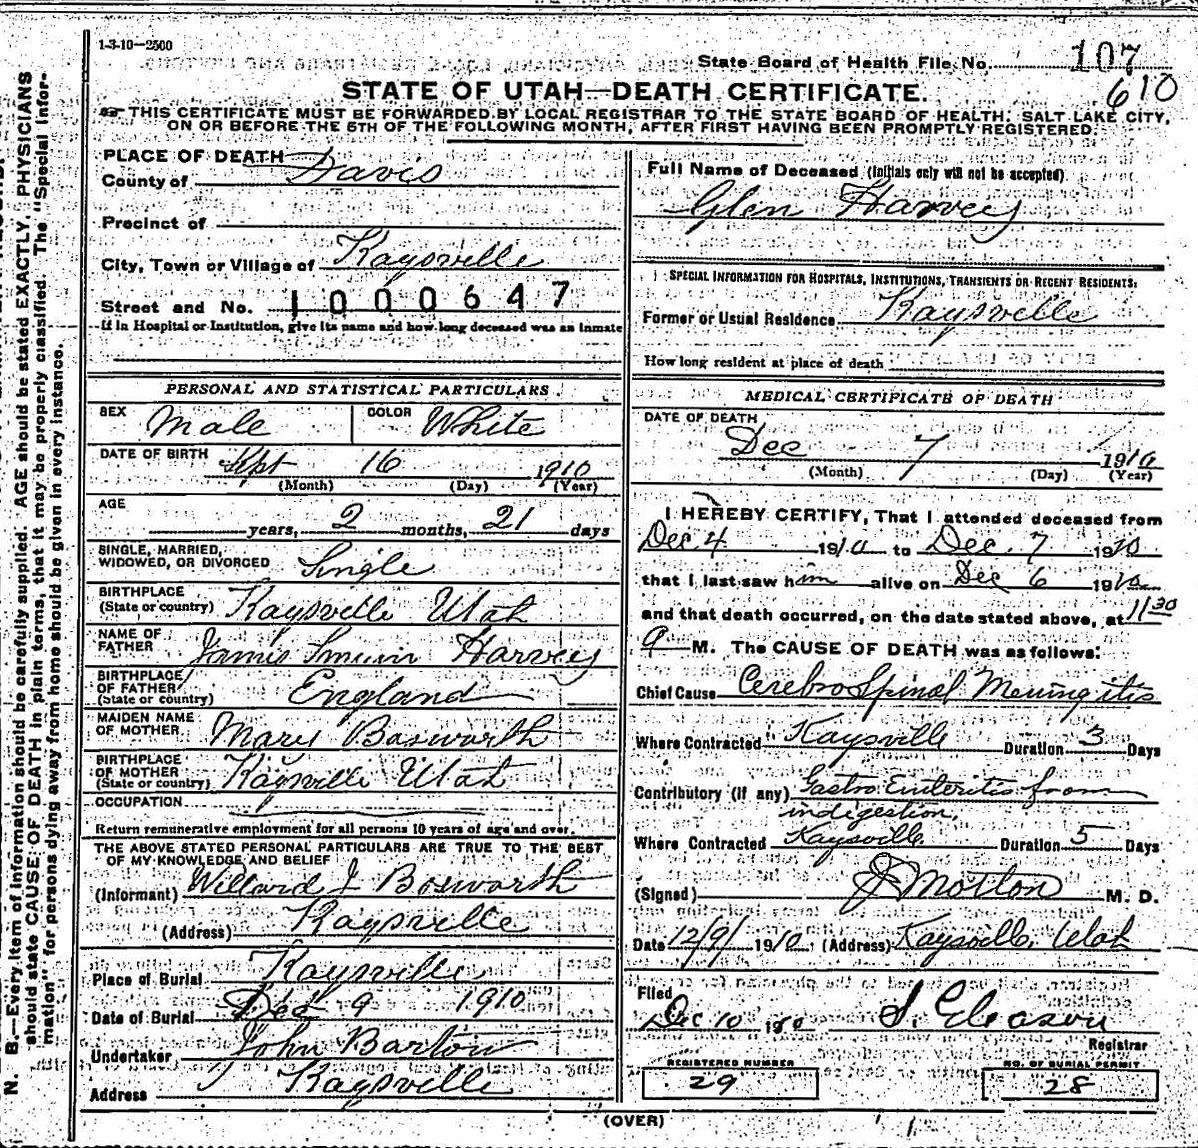 1-3-10-2500
State Board of Health File No. 107
610
STATE OF UTAH—DEATH CERTIFICATE.
THIS CERTIFICATE MUST BE FORWARDED BY LOCAL REGISTRAR TO THE STATE BOARD OF HEALTH, SALT LAKE CITY,
ON OR BEFORE THE 5TH OF THE FOLLOWING MONTH, AFTER FIRST HAVING BEEN PROMPTLY REGISTERED.
N. B.—Every item of information should be carefully supplied. AGE should be stated EXACTLY. PHYSICIANS
should state CAUSE OF DEATH in plain terms, that it may be properly classified. The "Special Infor-
mation" for persons dying away from home should be given in every instance.
PLACE OF DEATH
County of Davis
Precinct of
City, Town or Village of Kaysville
Street and No. 1000647
If in Hospital or Institution, give its name and how long deceased was an inmate
PERSONAL AND STATISTICAL PARTICULARS
SEX Male COLOR White
DATE OF BIRTH Sept 16 1910
(Month) (Day) (Year)
AGE
years, 2 months, 21 days
SINGLE, MARRIED,
WIDOWED, OR DIVORCED Single
BIRTHPLACE
(State or country) Kaysville Utah
NAME OF
FATHER Harvey
BIRTHPLACE
OF FATHER
(State or country) England
MAIDEN NAME
OF MOTHER Mary Bosworth
BIRTHPLACE
OF MOTHER
(State or country) Kaysville Utah
OCCUPATION
Return remunerative employment for all persons 10 years of age and over.
THE ABOVE STATED PERSONAL PARTICULARS ARE TRUE TO THE BEST
OF MY KNOWLEDGE AND BELIEF
(Informant) Willard J Bosworth
(Address) Kaysville
Place of Burial Kaysville
Date of Burial Dec 9 1910
Undertaker John Barton
Address Kaysville
Full Name of Deceased (Initials only will not be accepted)
Glen Harvey
SPECIAL INFORMATION FOR HOSPITALS, INSTITUTIONS, TRANSIENTS OR RECENT RESIDENTS:
Former or Usual Residence Kaysville
How long resident at place of death
MEDICAL CERTIFICATE OF DEATH
DATE OF DEATH
Dec 7 1910
(Month) (Day) (Year)
I HEREBY CERTIFY, That I attended deceased from
Dec 4 1910 to Dec 7 1910
that I last saw him alive on Dec 6 1910
and that death occurred, on the date stated above, at 11 30
a M. The CAUSE OF DEATH was as follows:
Chief Cause Cerebro Spinal Meningitis
Where Contracted Kaysville Duration 3 Days
Contributory (if any) Gastro Enteritis from
indigestion,
Where Contracted Kaysville Duration 5 Days
(Signed) M. D.
Date 12/9/ 1910 (Address) Kaysville, Utah
Filed
Dec 10 1910 S. Gleason
Registrar
REGISTERED NUMBER
29
NO. OF BURIAL PERMIT
28
(OVER)